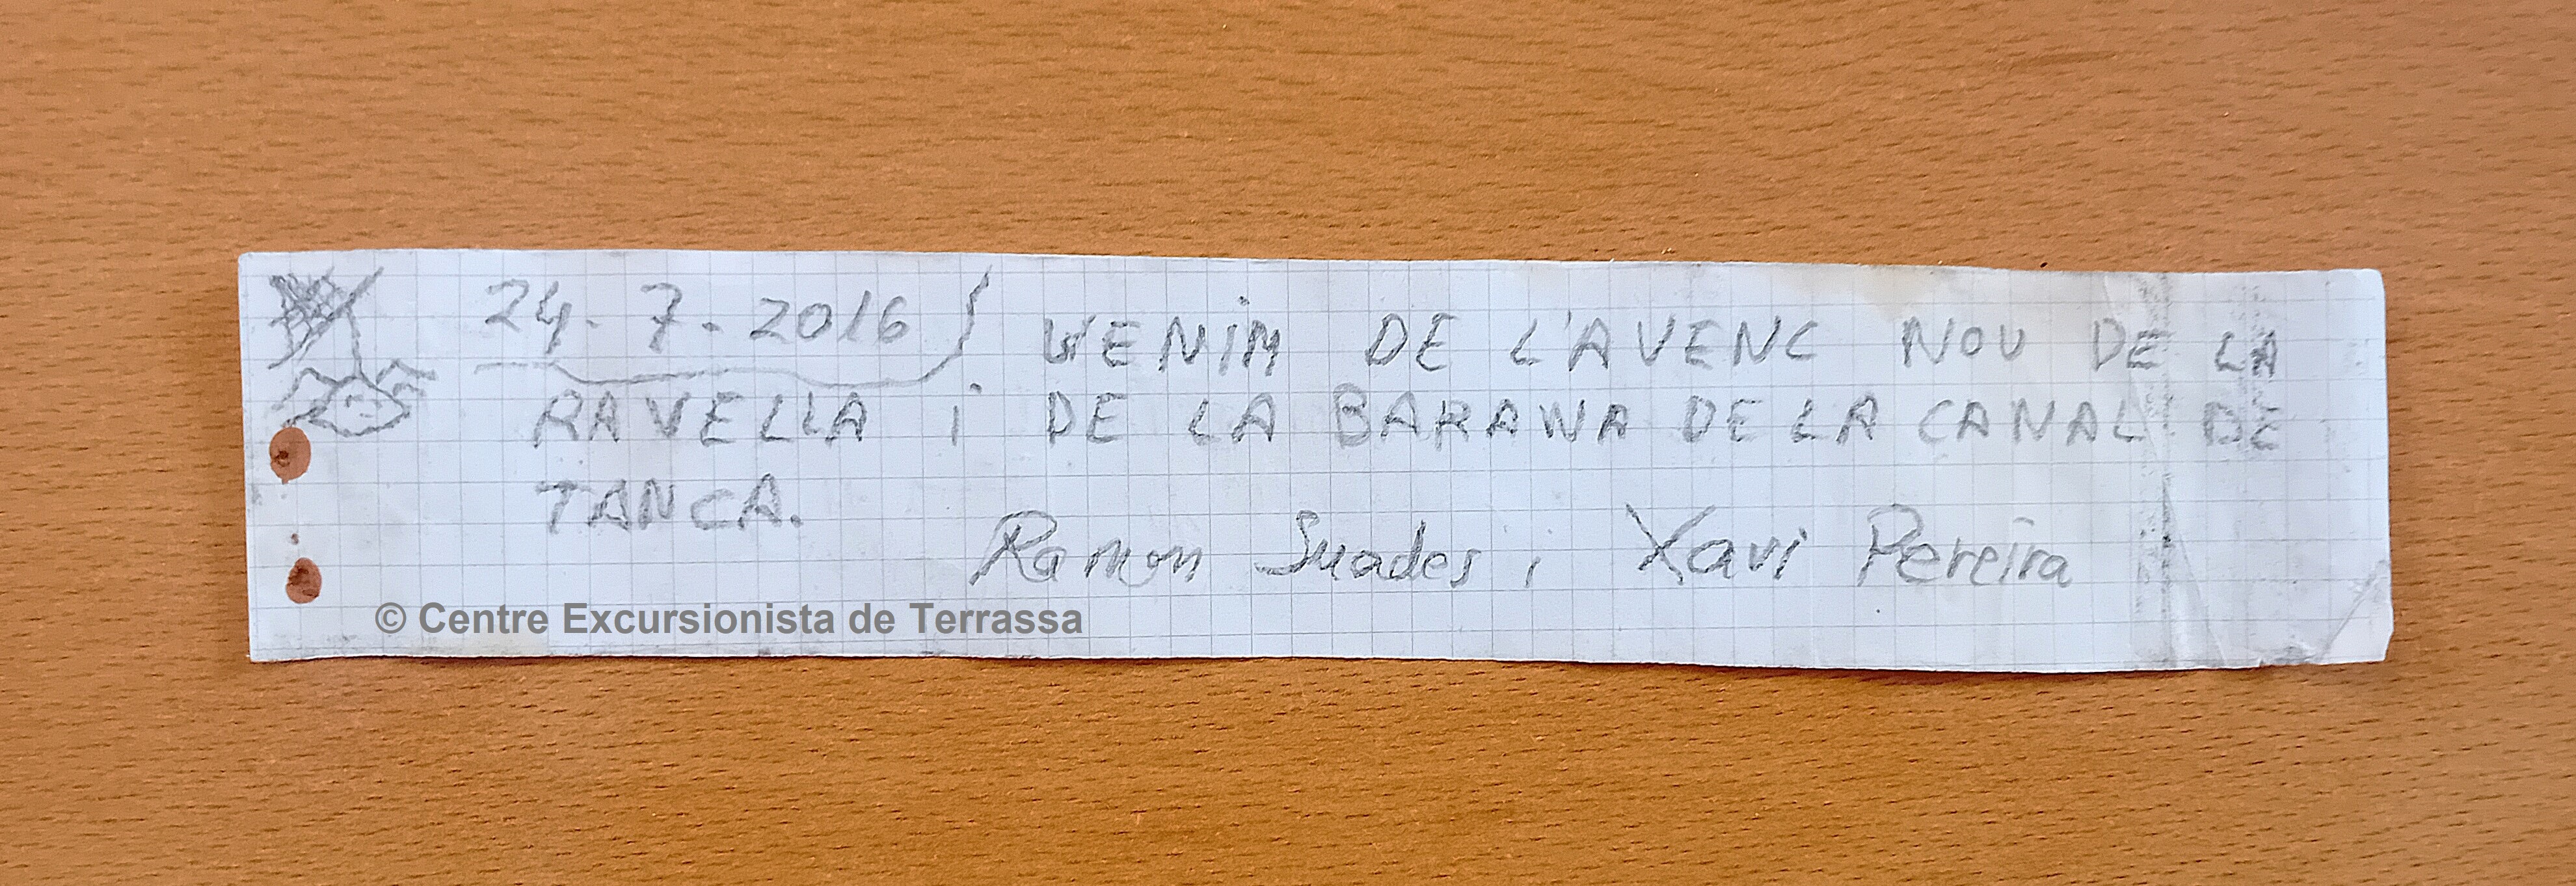 24-7-2016 VENIM DE L'AVENC NOU DE LA
RAVELLA i DE LA BARANA DE LA CANAL DE
TANCA.
Ramon Suades i Xavi Pereira
© Centre Excursionista de Terrassa